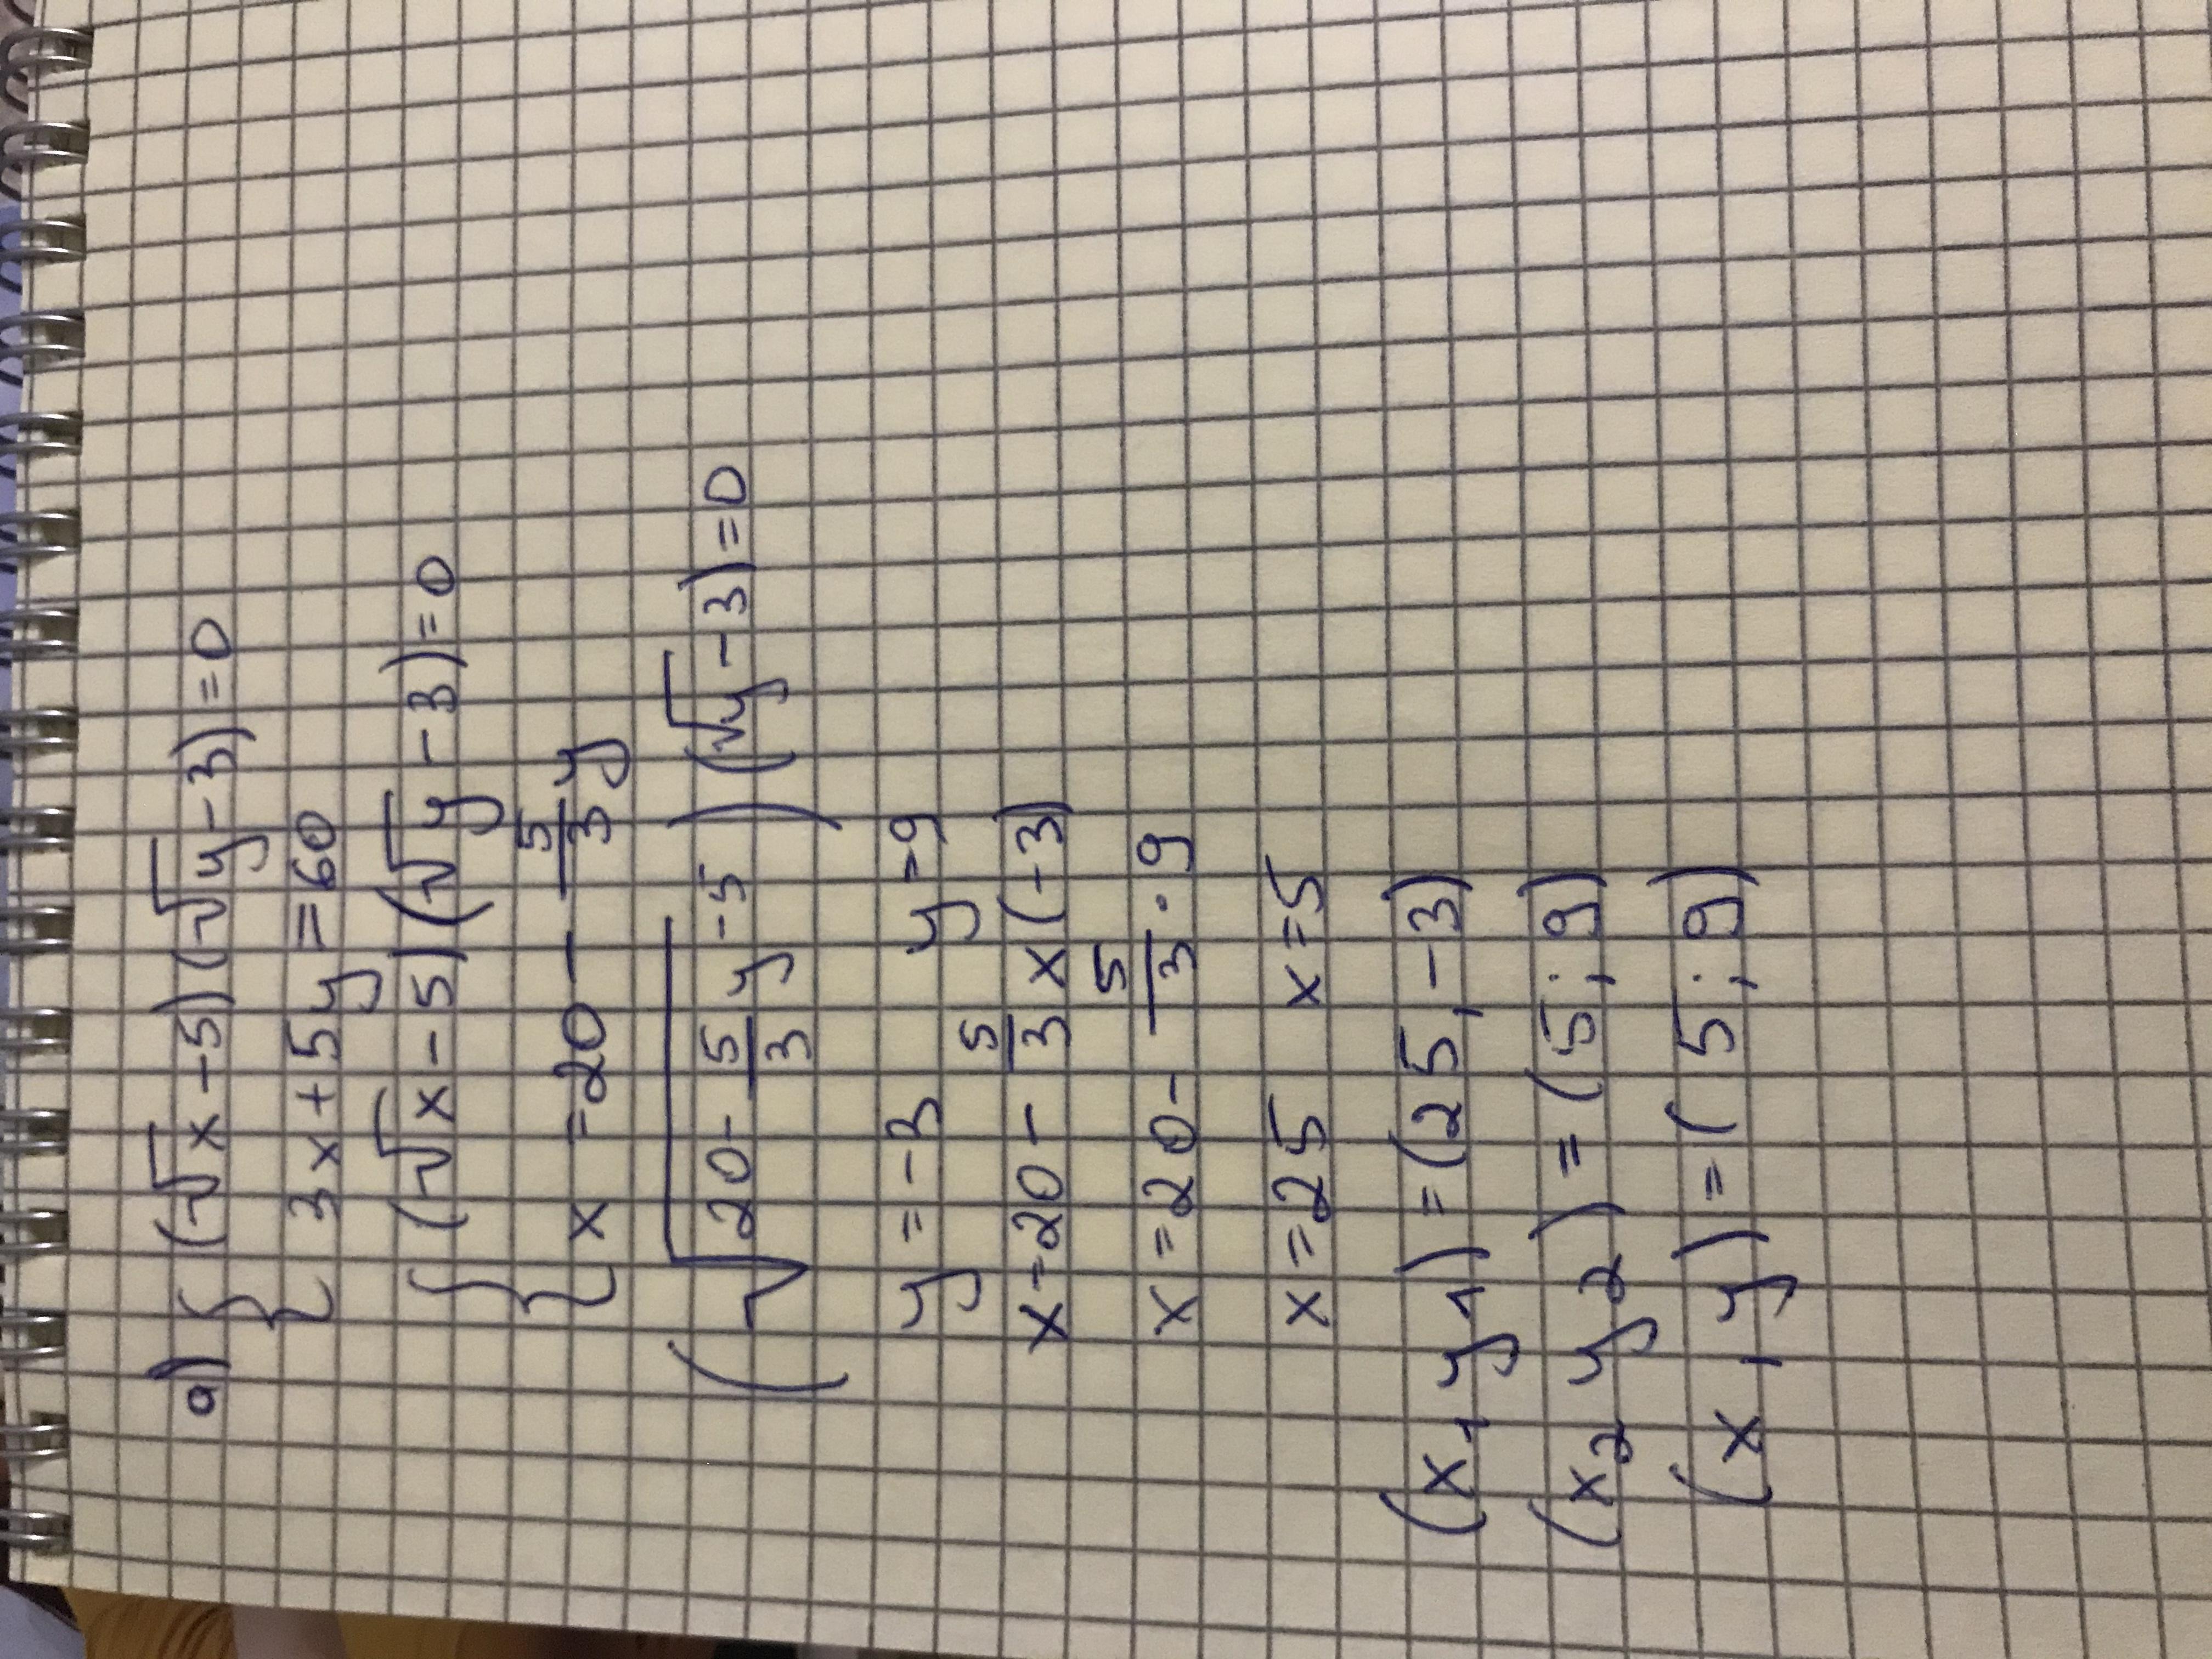 a) { (√x - 5)(√y - 3) = 0
3x + 5y = 60
{ (√x - 5)(√y - 3) = 0
x = 20 - 5/3 y
(√(20 - 5/3 y) - 5)(√y - 3) = 0
y = -3 y = 9
x = 20 - 5/3 x (-3)
x = 20 - 5/3 · 9
x = 25 x = 5
(x1 y1) = (25, -3)
(x2 y2) = (5; 9)
(x, y) = (5; 9)